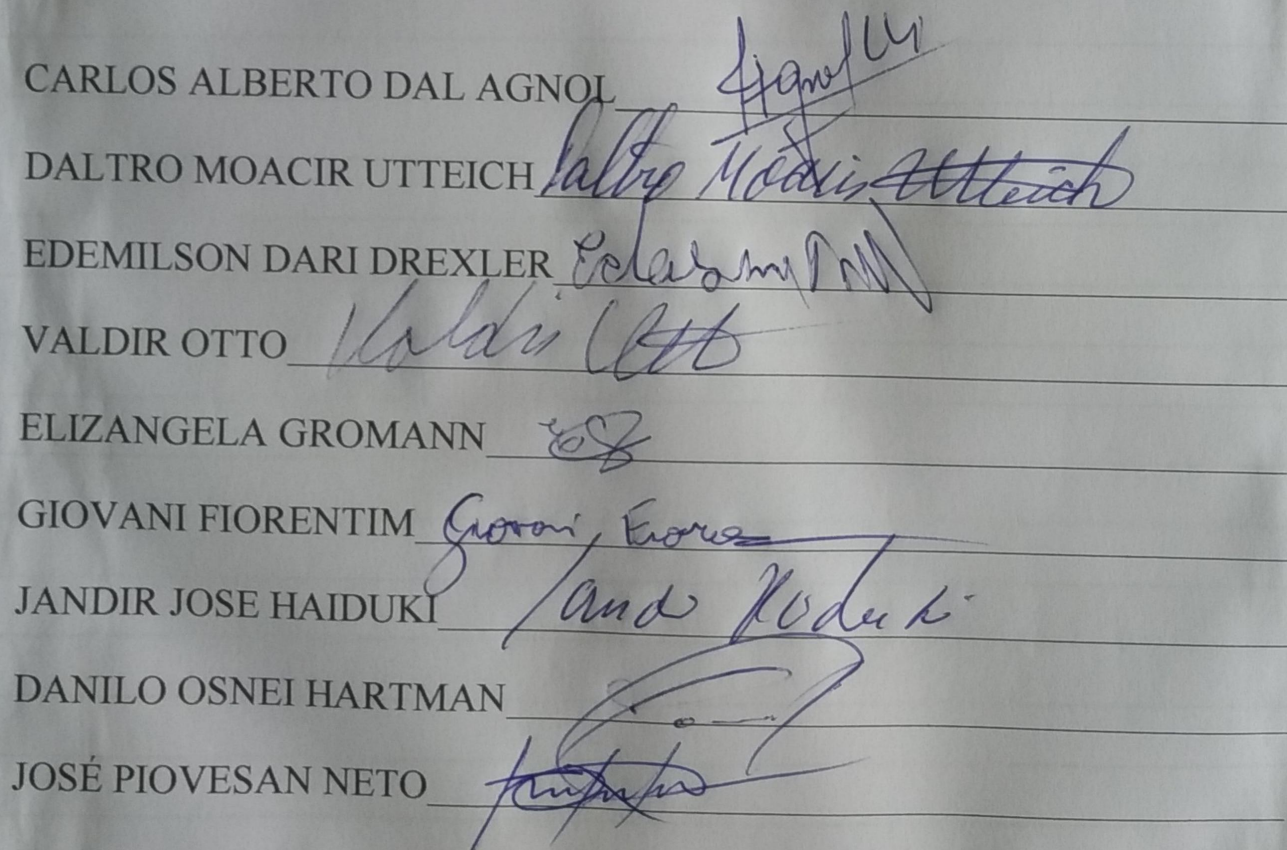 CARLOS ALBERTO DAL AGNOL
DALTRO MOACIR UTTEICH Daltro Moacir Utteich
EDEMILSON DARI DREXLER
VALDIR OTTO Valdir Otto
ELIZANGELA GROMANN
GIOVANI FIORENTIM Giovani
JANDIR JOSE HAIDUKI
DANILO OSNEI HARTMAN
JOSÉ PIOVESAN NETO